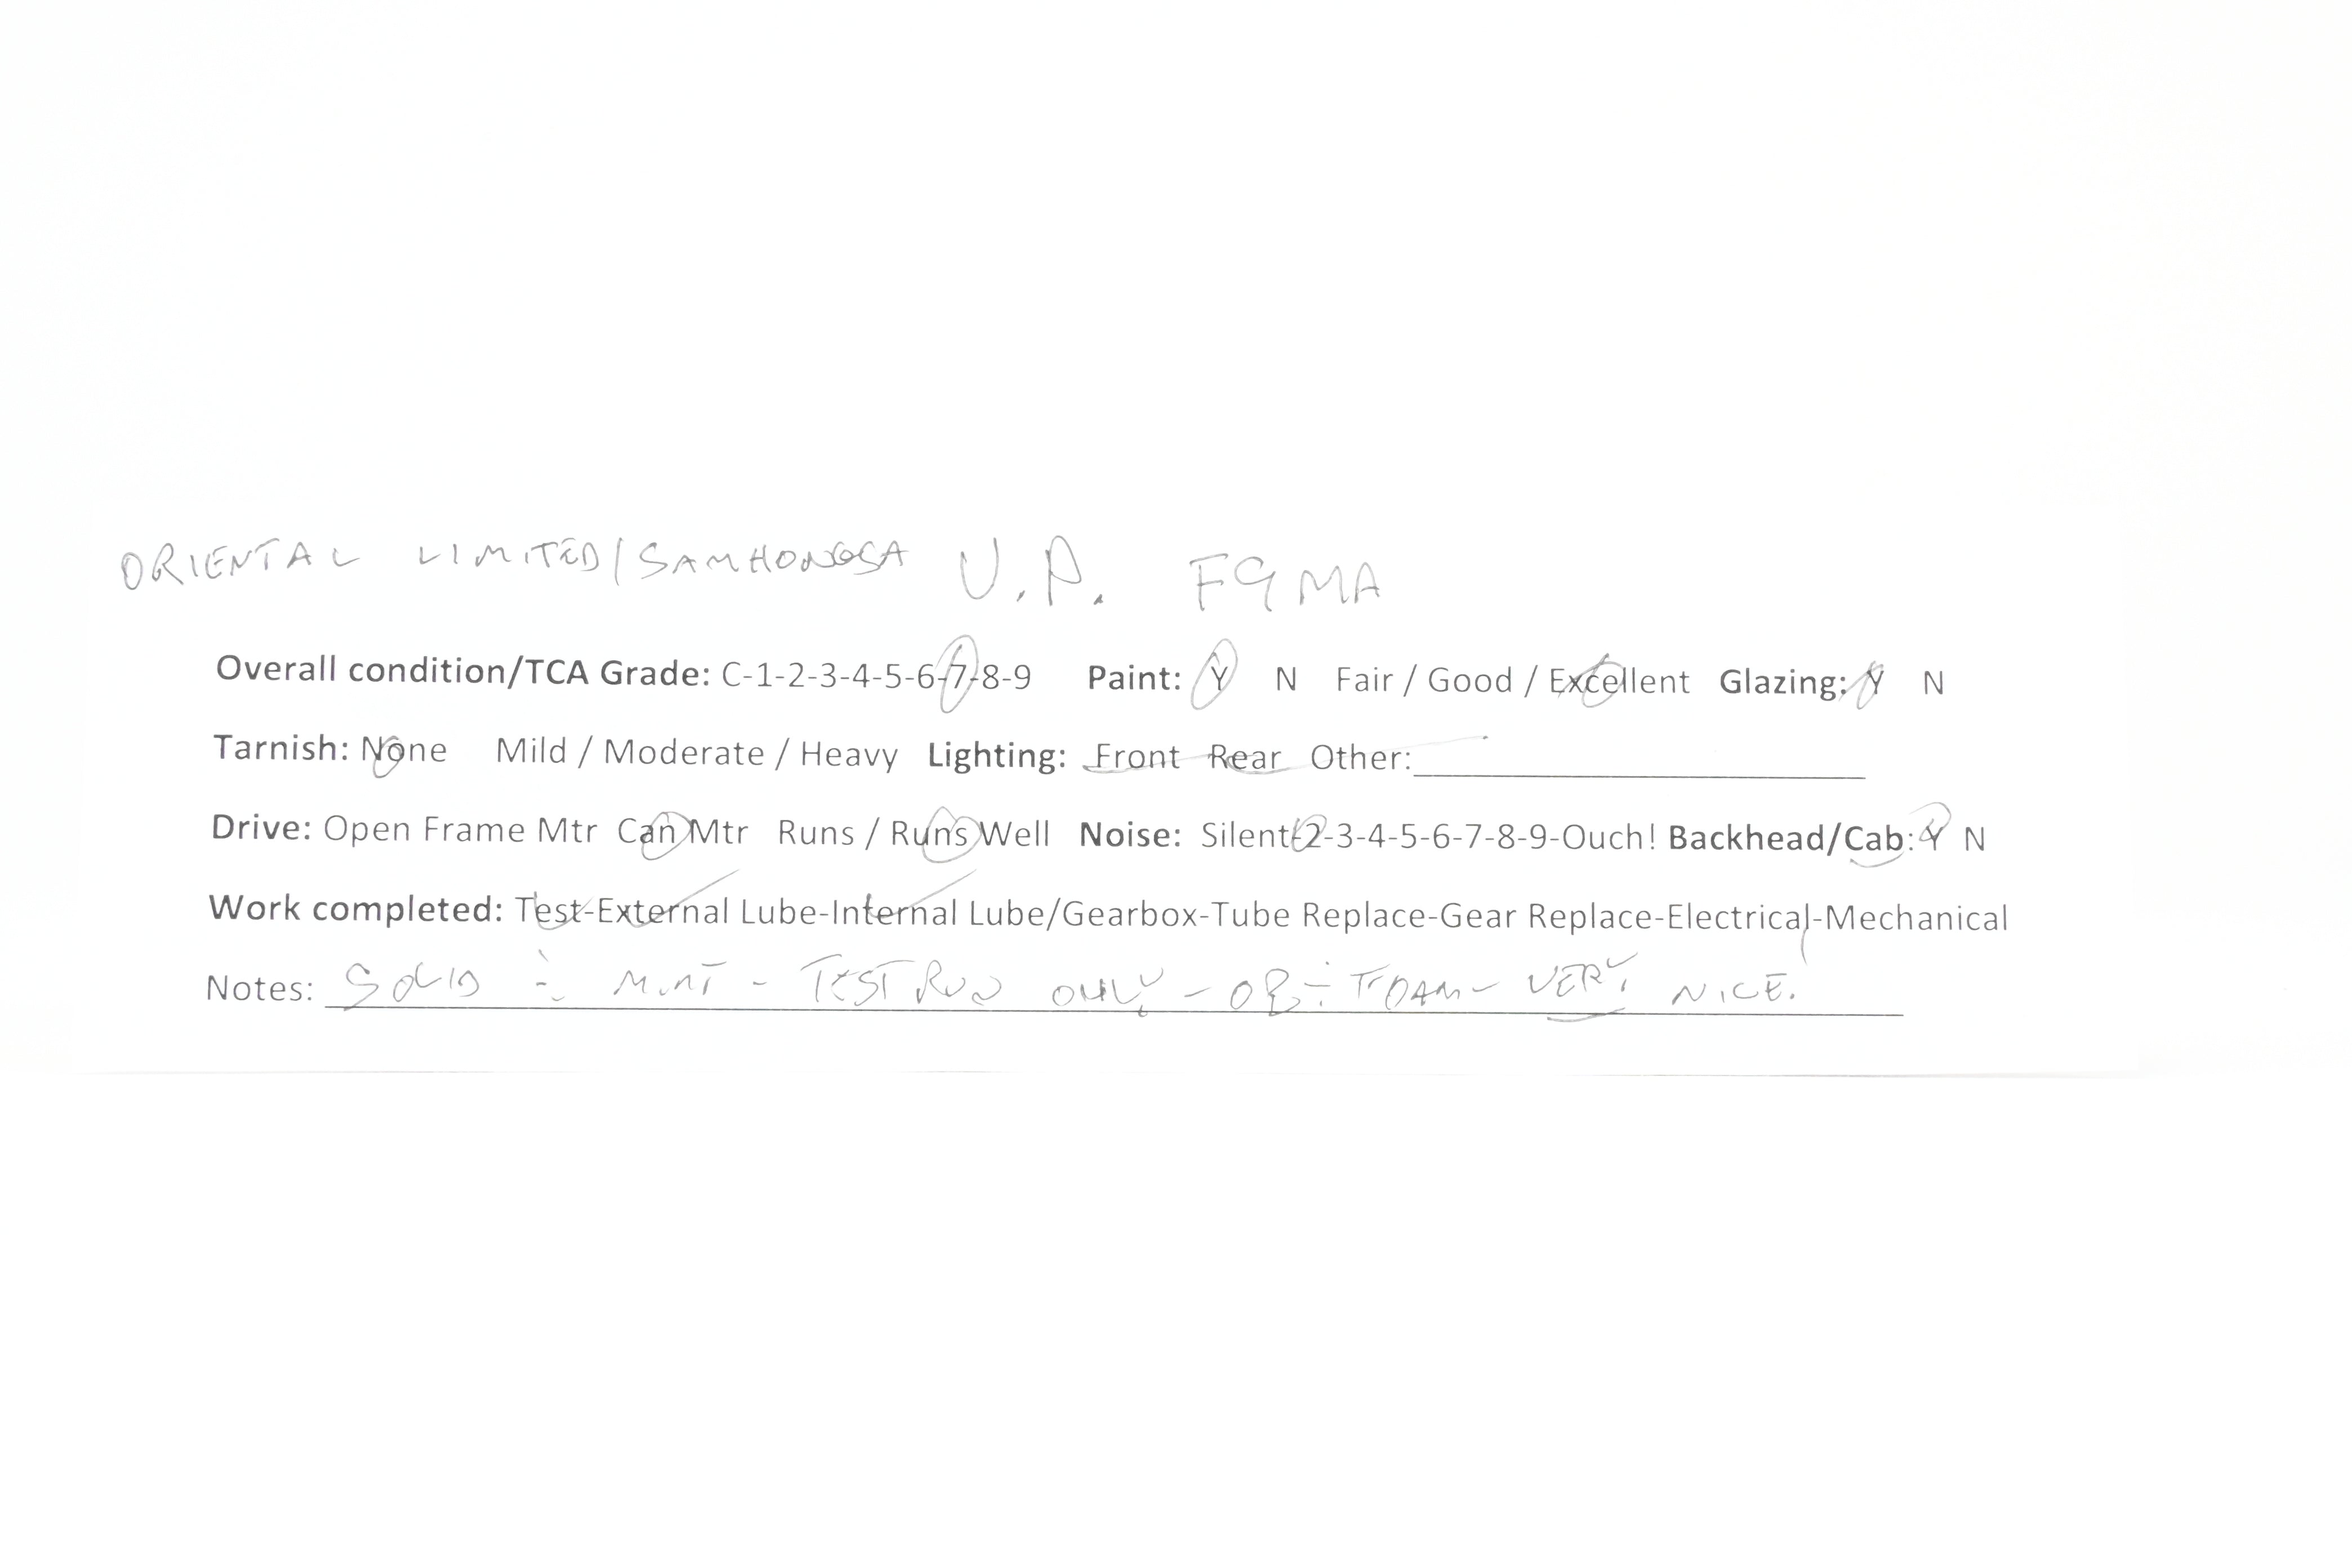 ORIENTAL LIMITED/SAMHONGSA U.P. F9MA
Overall condition/TCA Grade: C-1-2-3-4-5-6-7-8-9 Paint: Y N Fair / Good / Excellent Glazing: Y N
Tarnish: None Mild / Moderate / Heavy Lighting: Front Rear Other:
Drive: Open Frame Mtr Can Mtr Runs / Runs Well Noise: Silent-2-3-4-5-6-7-8-9-Ouch! Backhead/Cab: Y N
Work completed: Test-External Lube-Internal Lube/Gearbox-Tube Replace-Gear Replace-Electrical-Mechanical
Notes: SOLID - MINT - TEST RUN ONLY - OB FOAM - VERY NICE.